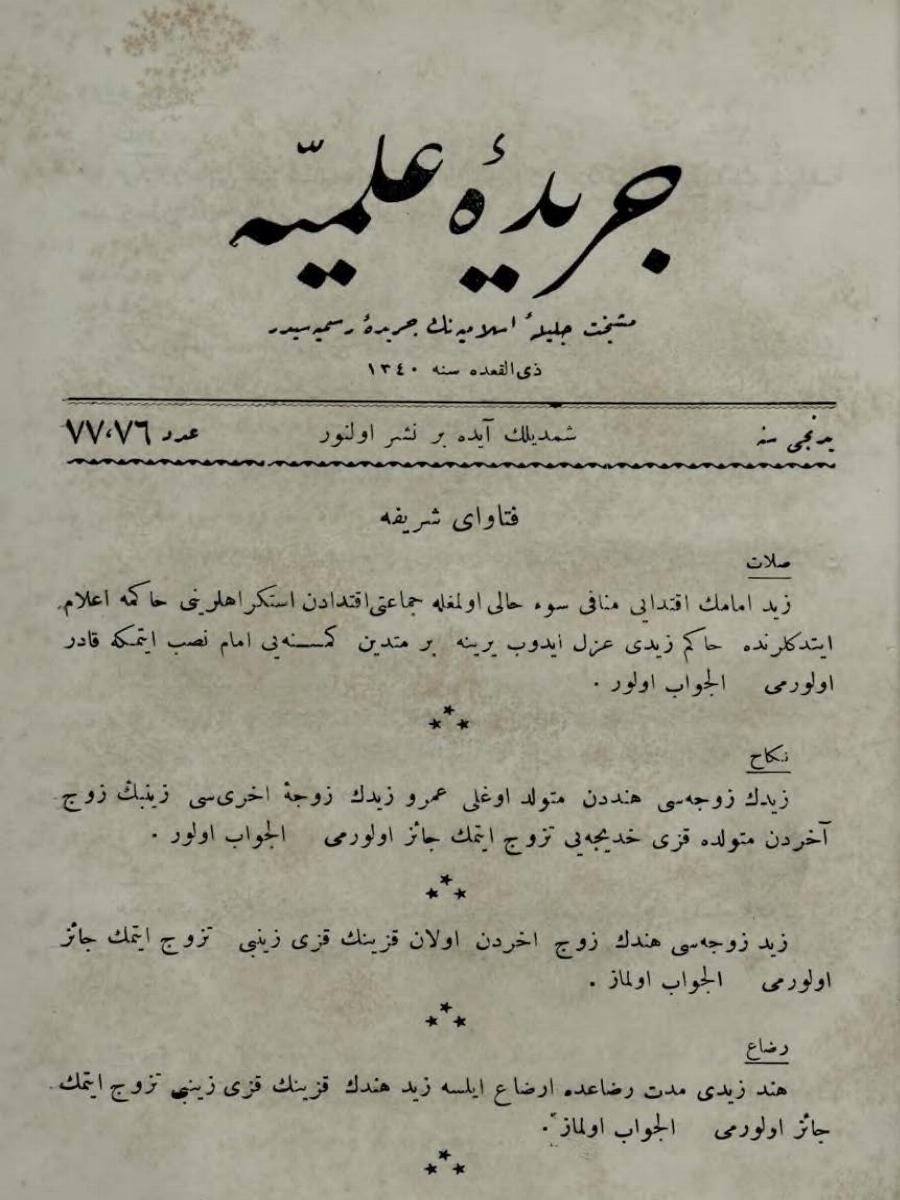 جريدهٔ علميّه
مشيخت جليلهٔ اسلاميه‌نك جريدهٔ رسميه‌سيدر
ذی القعده سنه ١٣٤٠
يدنجی سنه شمديلك آيده بر نشر اولنور عدد ٧٧،٧٦
فتاوای شريفه
صلات
زيد امامك اقتدايی منافی سوء حالی اولمغله جماعتی اقتدادن استكراهلرينی حاكمه اعلام
ايتدكلرنده حاكم زيدی عزل ايدوب يرينه بر متدين كمسنه‌يی امام نصب ايتمكه قادر
اولورمی الجواب اولور .
نكاح
زيدك زوجه‌سی هنددن متولد اوغلی عمرو زيدك زوجهٔ اخری‌سی زينبك زوج
آخردن متولده قزی خديجه‌يی تزوج ايتمك جائز اولورمی الجواب اولور .
زيد زوجه‌سی هندك زوج اخردن اولان قزينك قزی زينبی تزوج ايتمك جائز
اولورمی الجواب اولماز .
رضاع
هند زيدی مدت رضاعده ارضاع ايلسه زيد هندك قزينك قزی زينبی تزوج ايتمك
جائز اولورمی الجواب اولماز .